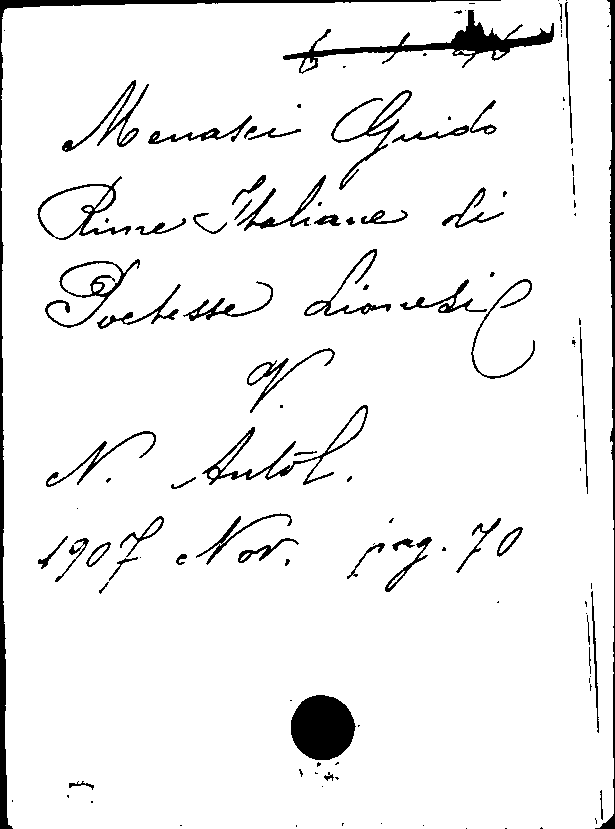 Menasci Guido
Rime Italiane di
Poetesse Lionesi
V.
N. Antol.
1907 Nov. pag. 70